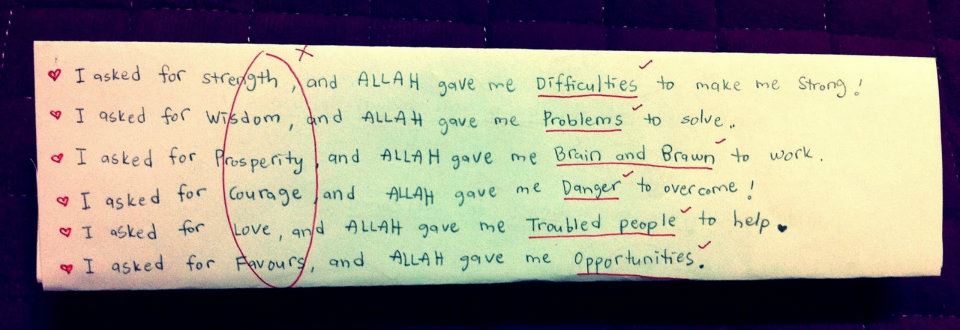 I asked for strength, and ALLAH gave me Difficulties to make me Strong!
I asked for Wisdom, and ALLAH gave me Problems to solve..
I asked for Prosperity, and ALLAH gave me Brain and Brawn to work.
I asked for Courage, and ALLAH gave me Danger to overcome!
I asked for Love, and ALLAH gave me Troubled people to help.
I asked for Favours, and ALLAH gave me Opportunities.